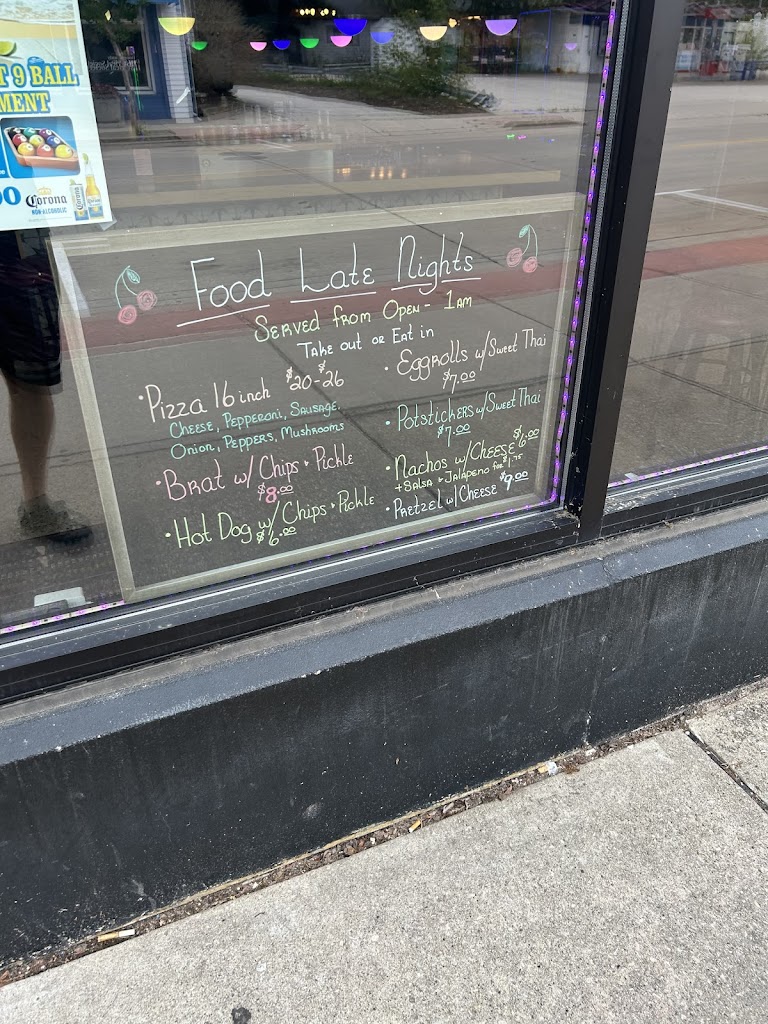 T 9 BALL
MENT
00
Corona
NON-ALCOHOLIC
Food Late Nights
Served from Open - 1am
Take out or Eat in
• Pizza 16 inch $20-$26
Cheese, Pepperoni, Sausage,
Onion, Peppers, Mushrooms
• Brat w/ Chips + Pickle
$8.00
• Hot Dog w/ Chips + Pickle
$6.00
• Eggrolls w/ Sweet Thai
$7.00
• Potstickers w/ Sweet Thai
$7.00
• Nachos w/ Cheese $6.00
+ Salsa + Jalapeno for $1.75
• Pretzel w/ Cheese $9.00